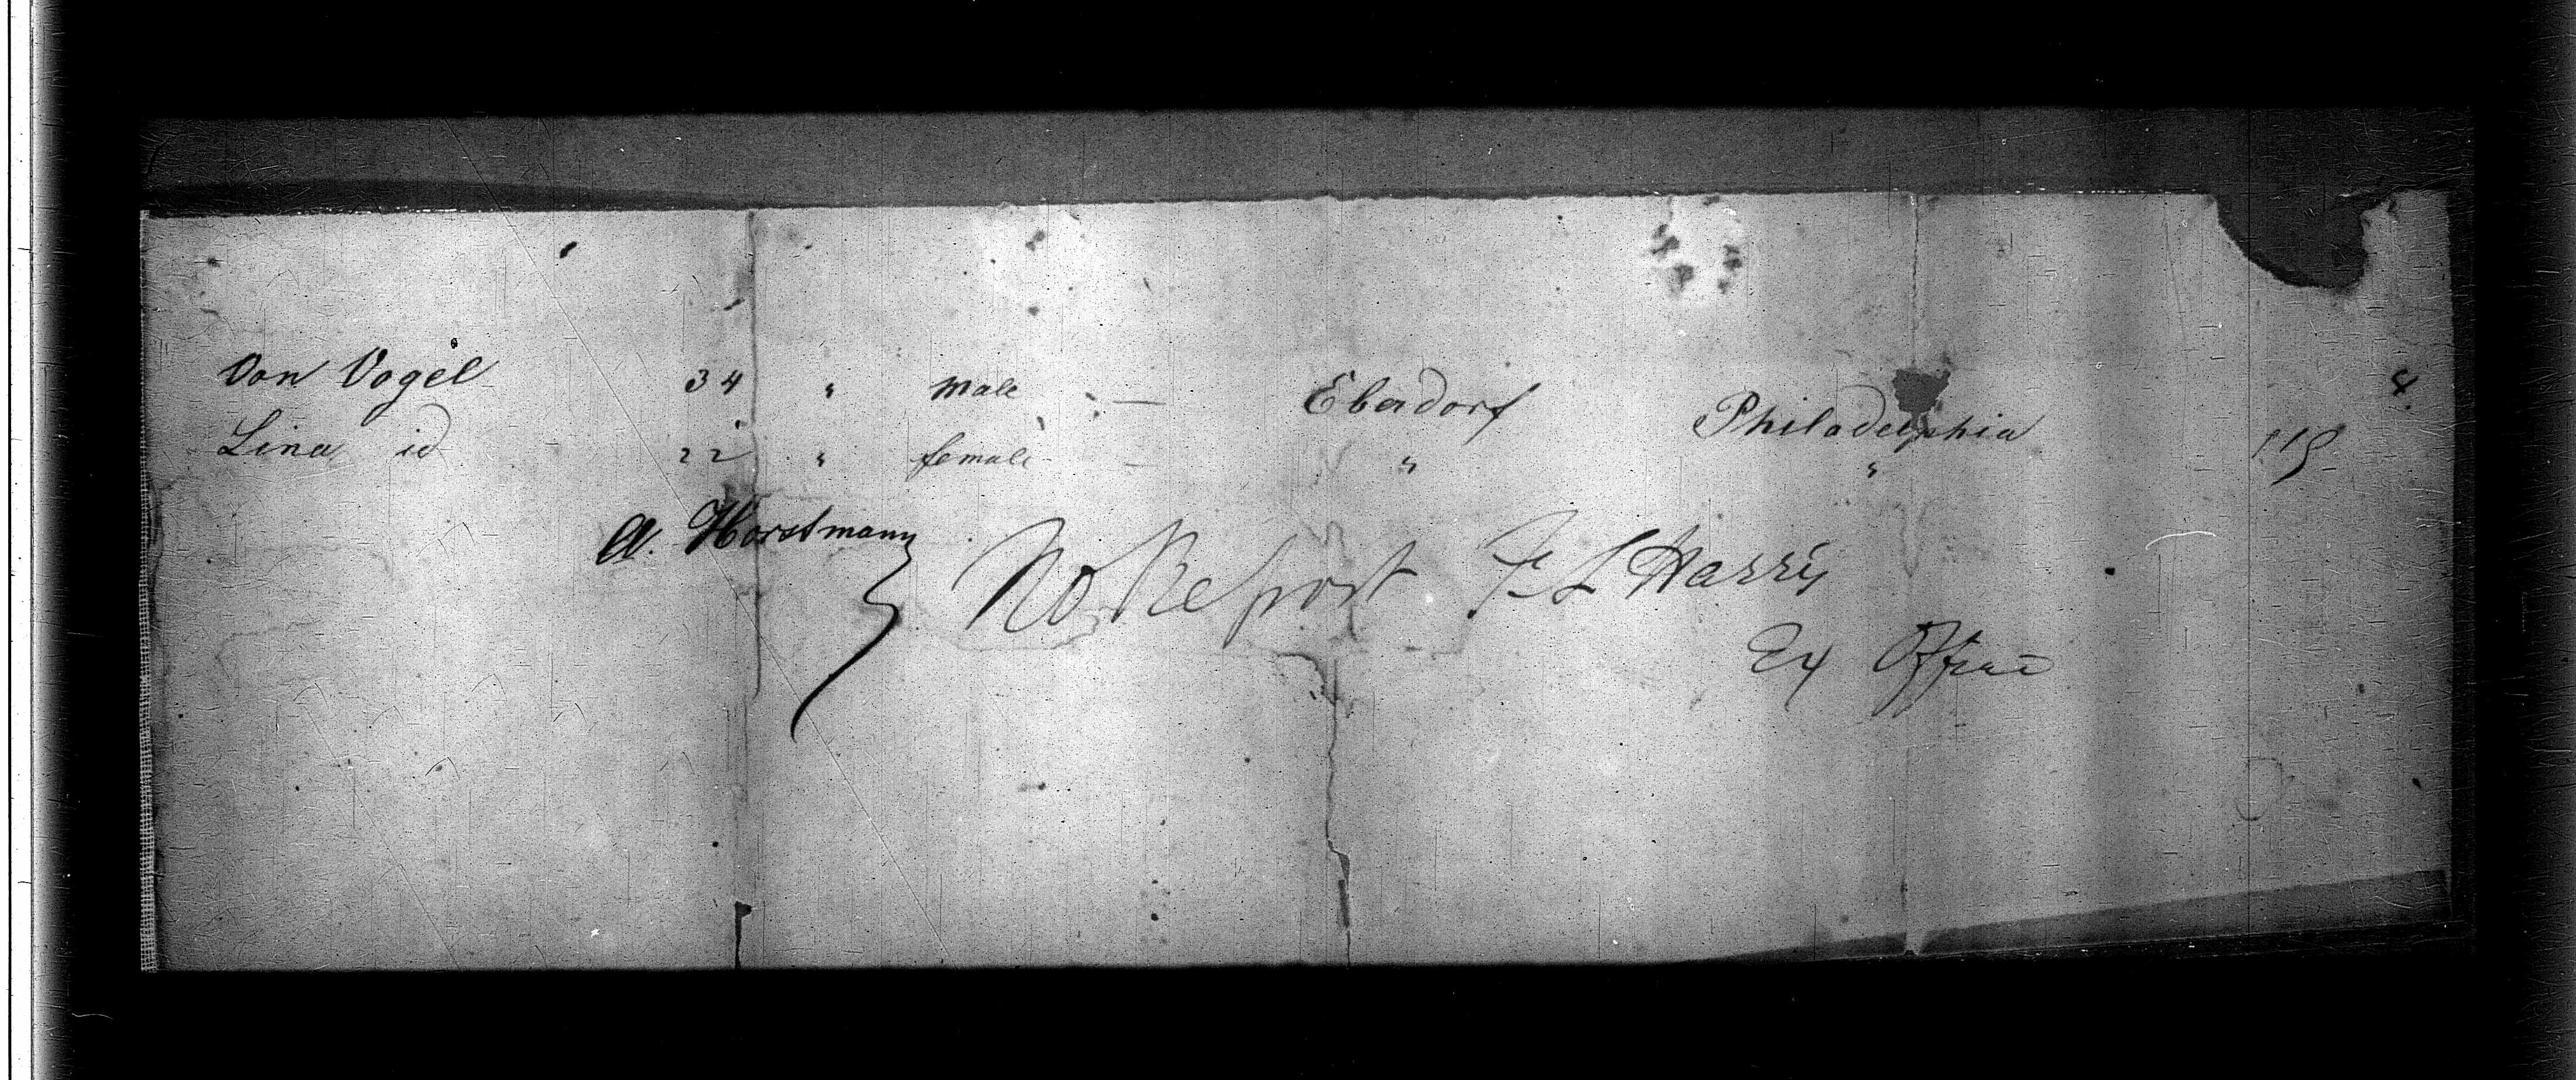 Von Vogel 34 " male — Eberdorf Philadelphia 8
Lina id 22 " female — " " 119
A. Horstmann
No Report F L Harris
Ex Office